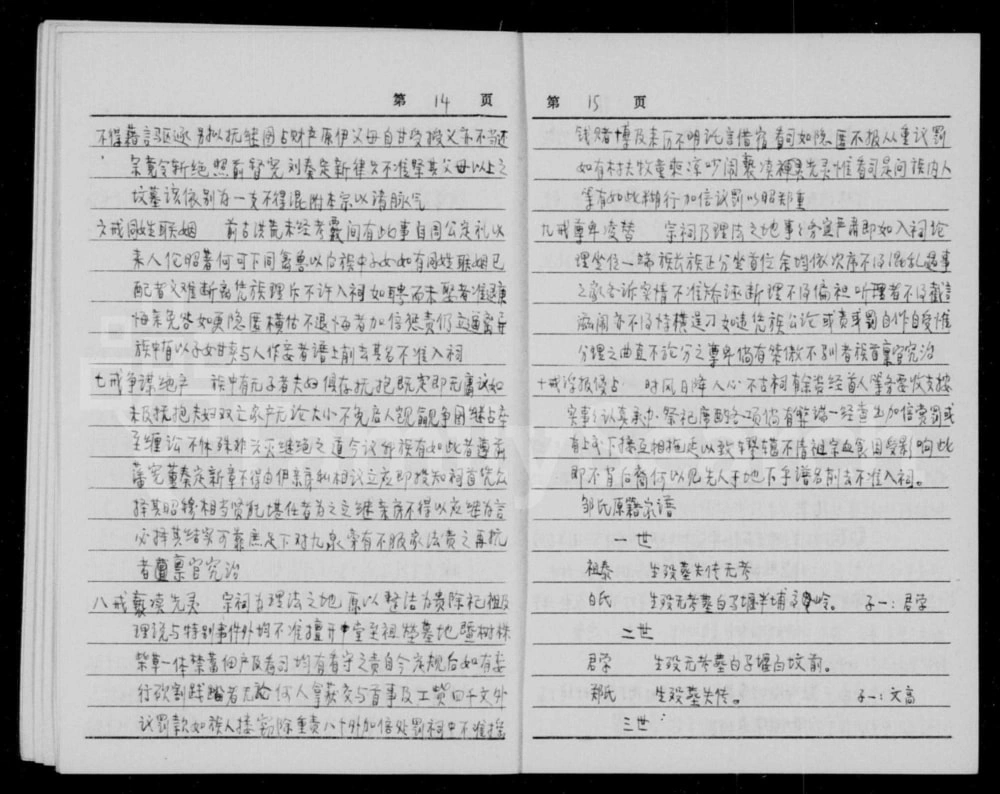 第 14 页
不得藉言驱逐 别以抚继图占财产 原伊父母自甘受授义亦不当还
宗竟令斩绝 照前督宪刘奏定新律只不准祭其父母以上之
坟墓该依别为一支不得混附本宗以清脉气
六戒同姓联姻 前古洪荒未经考覈间有此事自周公定礼以
来人伦昭著何可下同禽兽以后族中子女如有同姓联姻已
配者义难断离凭族理斥不许入祠如聘而未娶者准退庚
悔亲免咎如更隐匿横估不退悔者加倍惩责仍立逼离异
族中有以子女甘卖与人作妾者谱上削去其名不准入祠
七戒争谋绝产 族中有无子者夫妇俱存抚抱既定即无庸议如
未及抚抱夫妇双亡家产无论大小不免启人觊觎争用继占产
至缠讼不休殊非兴灭继绝之道今议邹族有如此者遵前
藩宪董奏定新章不得由伊亲房私相议立应即投知祠首凭众
择其昭穆相当贤能堪任者为之立继亲房不得以应继为言
必择其结实可靠庶足下对九泉寀有不服家法责之再抗
者亶禀官究治
八戒亵渎先灵 宗祠为理法之地 原以整洁为贵除祀祖及
理说与特别事件外均不准擅开中堂至祖茔墓地暨树株
柴草一体禁蓄佃户及看司均有看守之责自今定规后如有妄
行砍割践踏者无论何人拿获交与首事及工赀四千文外
议罚款如族人搂窃除重责八十外加倍处罚祠中不准摇
第 15 页
钱赌博及来历不明託言借宿看司如隐匿不报从重议罚
如有村夫牧童乘凉吵闹亵渎裤男先灵惟看司是问族内人
等有如此横行加倍议罚以昭郑重
九戒尊卑凌替 宗祠乃理法之地事之旁宜严肃即如入祠论
理坐位一端族长族正分坐首位余均依次序不得混乱遇事
之家各诉实情不准矫诬断理不得偏袒听理者不得截言
滋闹亦不得恃横逞刁如违凭族公论或责或罚自作自受惟
分理之曲直不论分之尊卑倘有桀傲不驯者族首禀官究治
十戒浮报侵占 时风日降人心不古祠有余资经首人等务要收支核
实事之认真承办祭祀席酌各项倘有弊端一经查出加倍赏罚或
有上下接互相拖延以致牟弊辖不清祖宗血食因受影响此
即不肖后裔何以见先人于地下手谱名削去不准入祠。
邹氏原籍宗谱
一世
祖泰 生殁墓失传无考
白氏 生殁无考墓白子堰半埔岭。 子一：君学
二世
君学 生殁无考墓白子堰白坟前。
郑氏 生殁墓失传。 子一：文高
三世